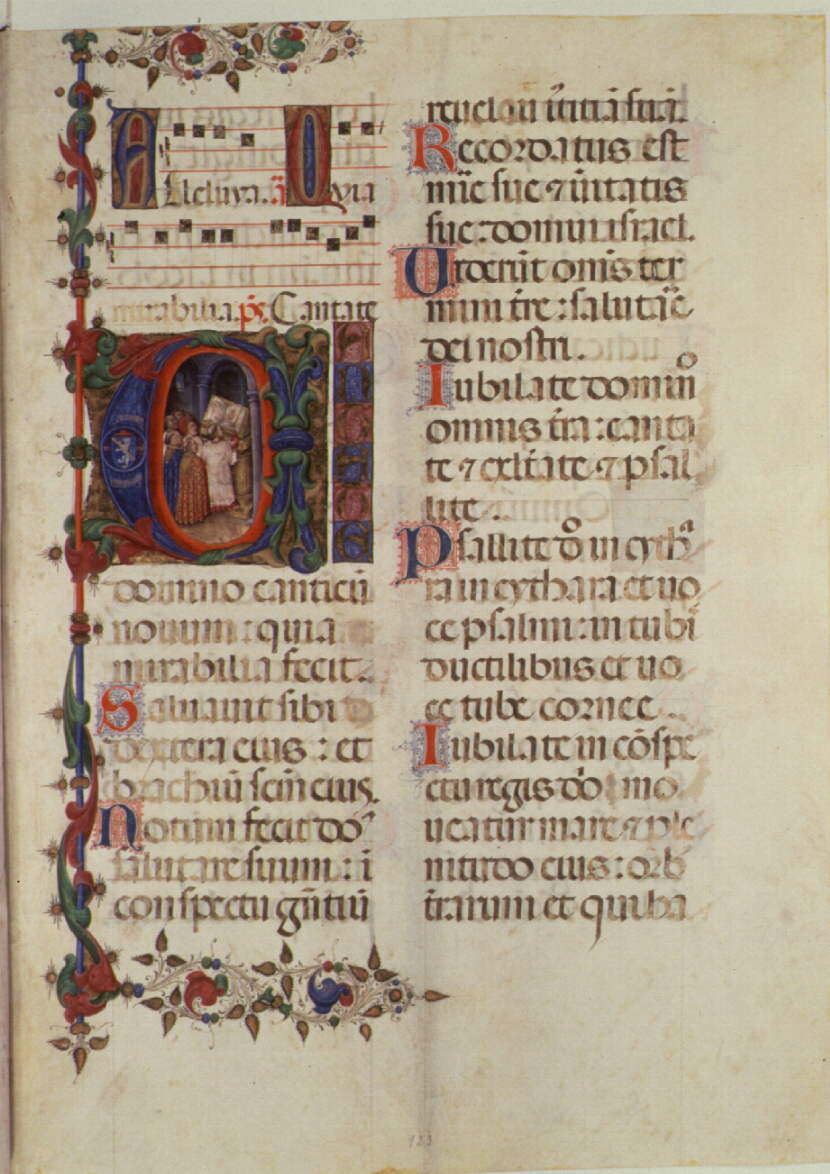 Alleluya. ā Evia
mirabilia. ps. Cantate
domino canticū
novum : quia
mirabilia fecit.
Saluauit sibi
dextera eius : et
brachiū scm̄ eius.
Notum fecit do
salutare suum : ī
conspectu gn̄tiū
reuelauit iustitiā suā.
Recordatus est
mīe sue ⁊ ūitatis
sue : domui israel.
Uiderūt om̄s ter
mini tr̄e : salutāe
dei nostri.
Iubilate domino
omnis tr̄a : canta
te ⁊ exltate ⁊ psal
lite .
Psallite dō in cyth
ra in cythara et uo
ce psalmi : in tubi
ductilibus et uo
ce tube cornee .
Iubilate in cōspe
ctu regis dō mo
ueatur mare ⁊ ple
nitudo eius : orb
tr̄arum et qui ha